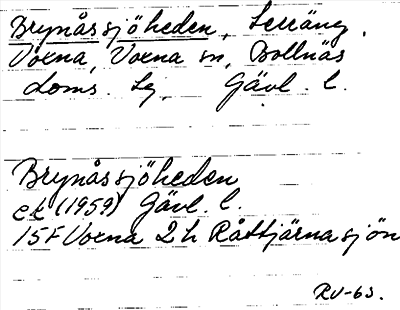 Brynåssjöheden, Terräng,
Voxna, Voxna sn, Bollnäs
doms. lg, Gävl. l.
Brynåssjöheden
ek (1959) Gävl. l.
15F Voxna 2h Råttjärnasjön
RV-63.